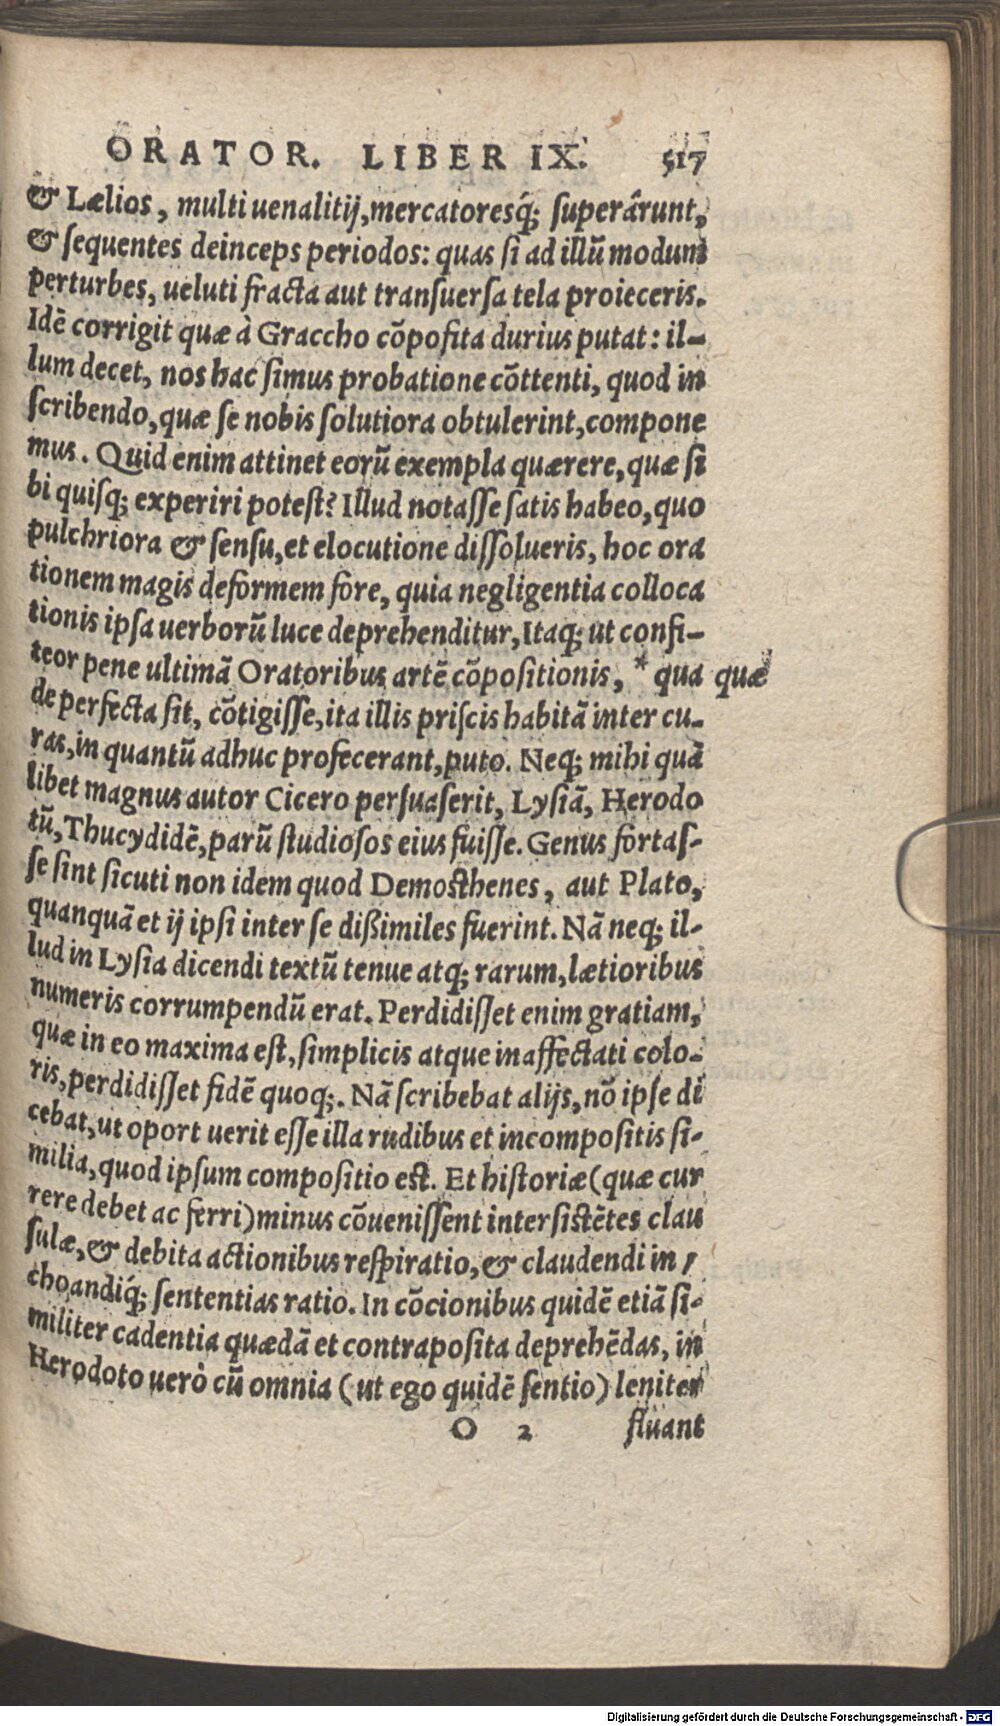 ORATOR. LIBER IX. 517
& Lælios, multi uenalitij, mercatoresq́; superârunt,
& sequentes deinceps periodos: quas si ad illũ modum
perturbes, ueluti fracta aut transuersa tela proieceris.
Idẽ corrigit quæ à Graccho cõposita durius putat: il-
lum decet, nos hac simus probatione cõttenti, quod in
scribendo, quæ se nobis solutiora obtulerint, compone
mus. Quid enim attinet eorũ exempla quærere, quæ si
bi quisq; experiri potest? Illud notasse satis habeo, quo
pulchriora & sensu, et elocutione dissolueris, hoc ora
tionem magis deformem fore, quia negligentia colloca
tionis ipsa uerborũ luce deprehenditur, Itaq; ut confi-
teor pene ultimã Oratoribus artẽ cõpositionis, * qua quæ
de perfecta sit, cõtigisse, ita illis priscis habitã inter cu-
ras, in quantũ adhuc profecerant, puto. Neq; mihi quã
libet magnus autor Cicero persuaserit, Lysiã, Herodo
tũ, Thucydidẽ, parũ studiosos eius fuisse. Genus fortas-
se sint sicuti non idem quod Demosthenes, aut Plato,
quanquã et ij ipsi inter se dißimiles fuerint. Nã neq; il-
lud in Lysia dicendi textũ tenue atq; rarum, lætioribus
numeris corrumpendũ erat. Perdidisset enim gratiam,
quæ in eo maxima est, simplicis atque inaffectati colo-
ris, perdidisset fidẽ quoq;. Nã scribebat alijs, nõ ipse di
cebat, ut oport uerit esse illa rudibus et incompositis si-
milia, quod ipsum compositio est. Et historiæ (quæ cur
rere debet ac ferri) minus cõuenissent intersistẽtes clau
sulæ, & debita actionibus respiratio, & claudendi in,
choandiq́; sententias ratio. In cõcionibus quidẽ etiã si-
militer cadentia quædã et contraposita deprehẽdas, in
Herodoto uerò cũ omnia (ut ego quidẽ sentio) leniter
O 2 fluant
Digitalisierung gefördert durch die Deutsche Forschungsgemeinschaft - DFG